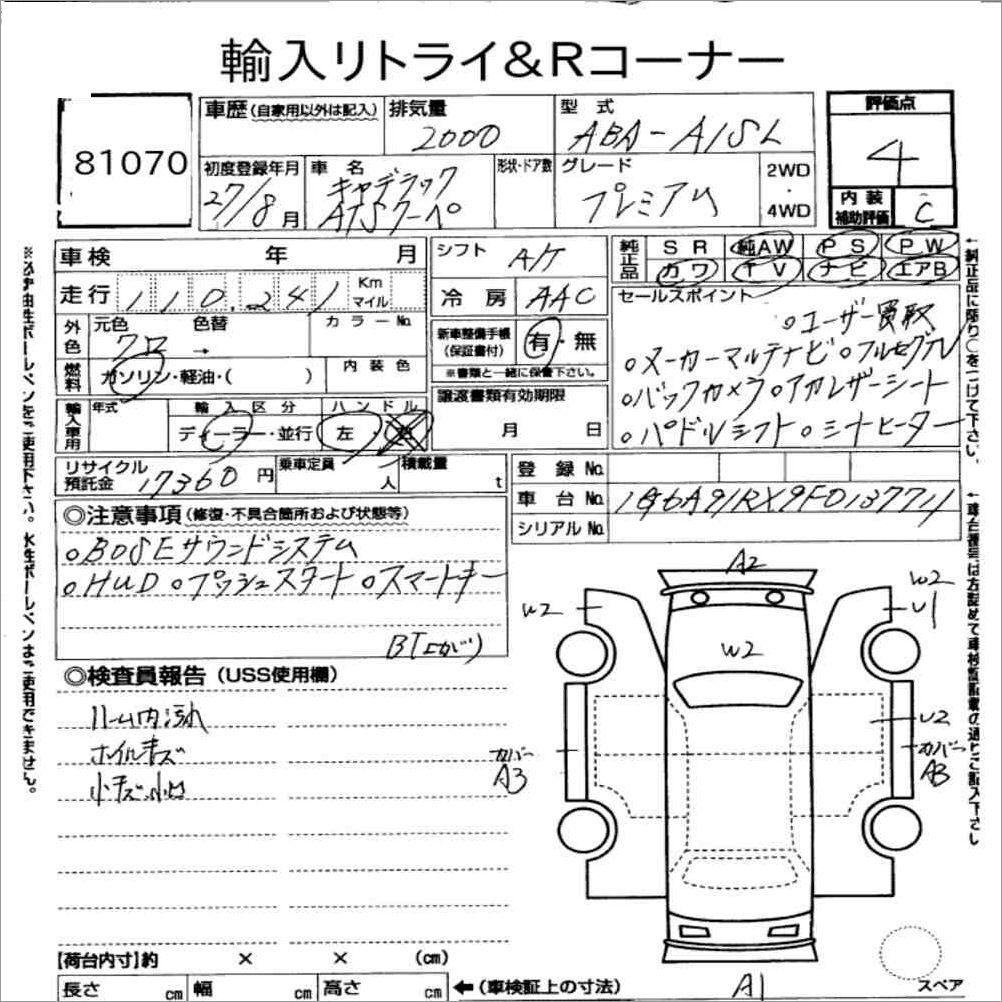 輸入リトライ&Rコーナー
81070
車歴(自家用以外は記入)
排気量
2000
型 式
ABA-A1SL
評価点
4
初度登録年月
27/8月
車 名
キャデラック
ATSクーペ
形状・ドア数
グレード
プレミアム
2WD
・
4WD
内 装
補助評価
C
車検 年 月
シフト
A/T
純正品
SR 純AW PS PW
カワ TV ナビ エアB
走行 110,241 Km
マイル
冷 房 AAC
セールスポイント
○ユーザー買取
○メーカーマルチナビ ○フルセグTV
○バックカメラ ○アカレザーシート
○パドルシフト ○シートヒーター
外色
元色 色替
クロ →
カラーNo.
新車整備手帳
(保証書付)
有・無
※書類と一緒に保管下さい。
燃料
ガソリン・軽油・( )
内 装 色
輸入車用
年式
輸 入 区 分
ディーラー・並行
ハ ン ド ル
左 右
譲渡書類有効期限
月 日
リサイクル
預託金 17360 円
乗車定員
人
積載量
t
登 録 No.
車 台 No. 1G6A91RX9F0137711
シリアルNo.
◎注意事項(修復・不具合箇所および状態等)
○BOSEサウンドシステム
○HUD ○プッシュスタート ○スマートキー
BT上がり
◎検査員報告(USS使用欄)
ルーム内汚れ
ホイルキズ
小キズ小凹
A2
W2
W2
U1
W2
U2
カバー
A3
カバー
A3
A1
スペア
【荷台内寸】約 × × (cm)
長さ cm 幅 cm 高さ cm ←(車検証上の寸法)
※必ず油性ボールペンをご使用下さい。水性ボールペンはご使用できません。
←純正品に限り○をつけて下さい。
←車台番号は左詰めで車検証記載の通りご記入下さい